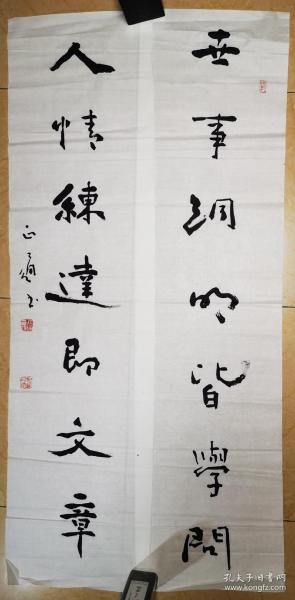 世事洞明皆學問
人情練達即文章
孔夫子旧书网
www.kongfz.com